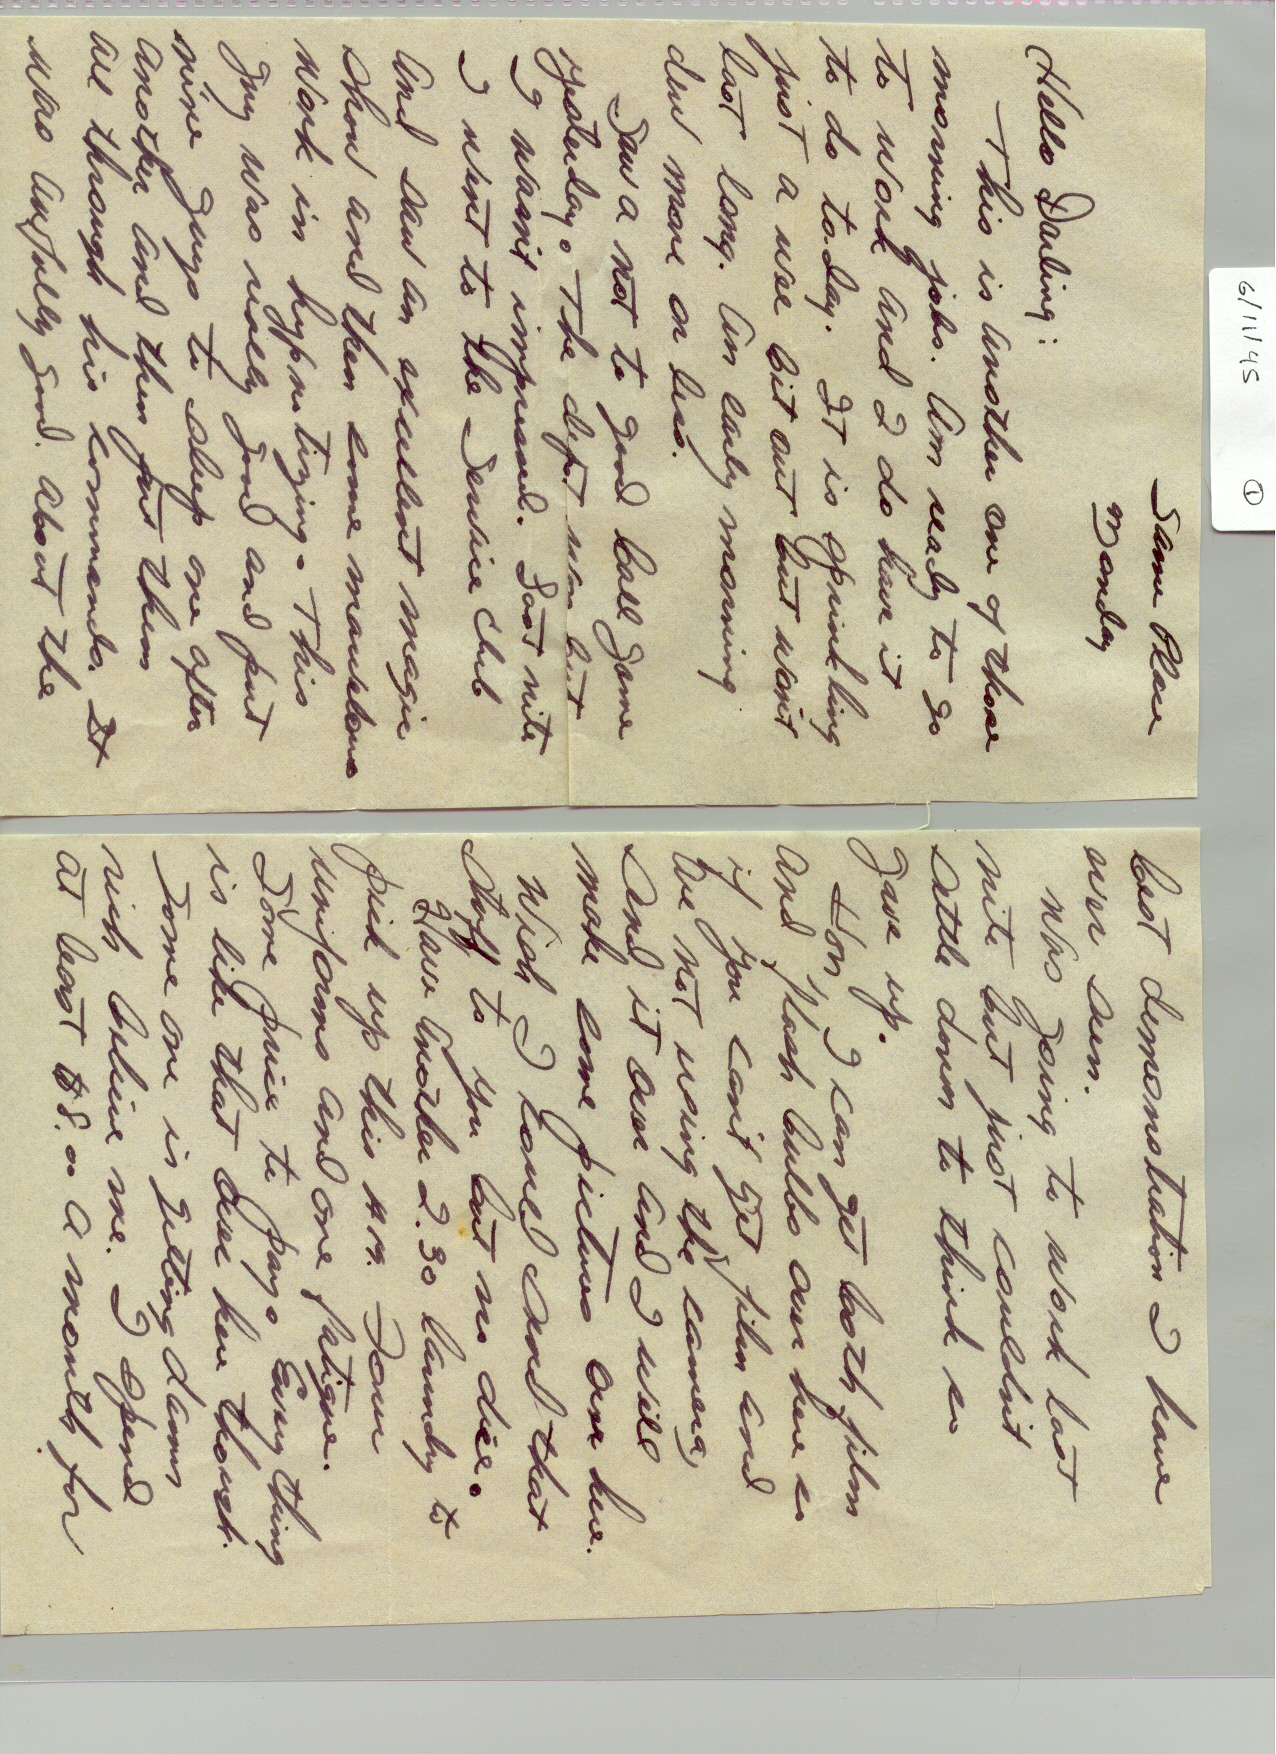 6/11/45 ①
Same Place
Monday
Hello Darling:
This is another one of those
morning jobs. Am ready to go
to work and I do have it
to do today. It is sprinkling
just a wee bit out but won't
last long. An early morning
dew more or less.
Saw a not to good ball game
yesterday. The dept won but
I wasn't impressed. Last nite
I went to the Service Club
and saw an excellent magic
show and then some marvelous
work in hypnotizing. This
guy was really good and put
nine guys to sleep one after
another and then put them
all through his commands. It
was awfully good. About the
best demonstration I have
ever seen.
Was going to work last
nite but just couldn't
settle down to think so
gave up.
Hon, I can get both film
and flash bulbs over here so
if you can't get film and
are not using the camera,
send it over and I will
make some pictures over here.
Wish I could send that
stuff to you but no dice.
Have another 2.30 laundry to
pick up this A.M. Four
uniforms and one fatigue.
Some price to pay. Every thing
is like that over here though.
Some one is getting damn
rich believe me. I spend
at least $8.00 a month for